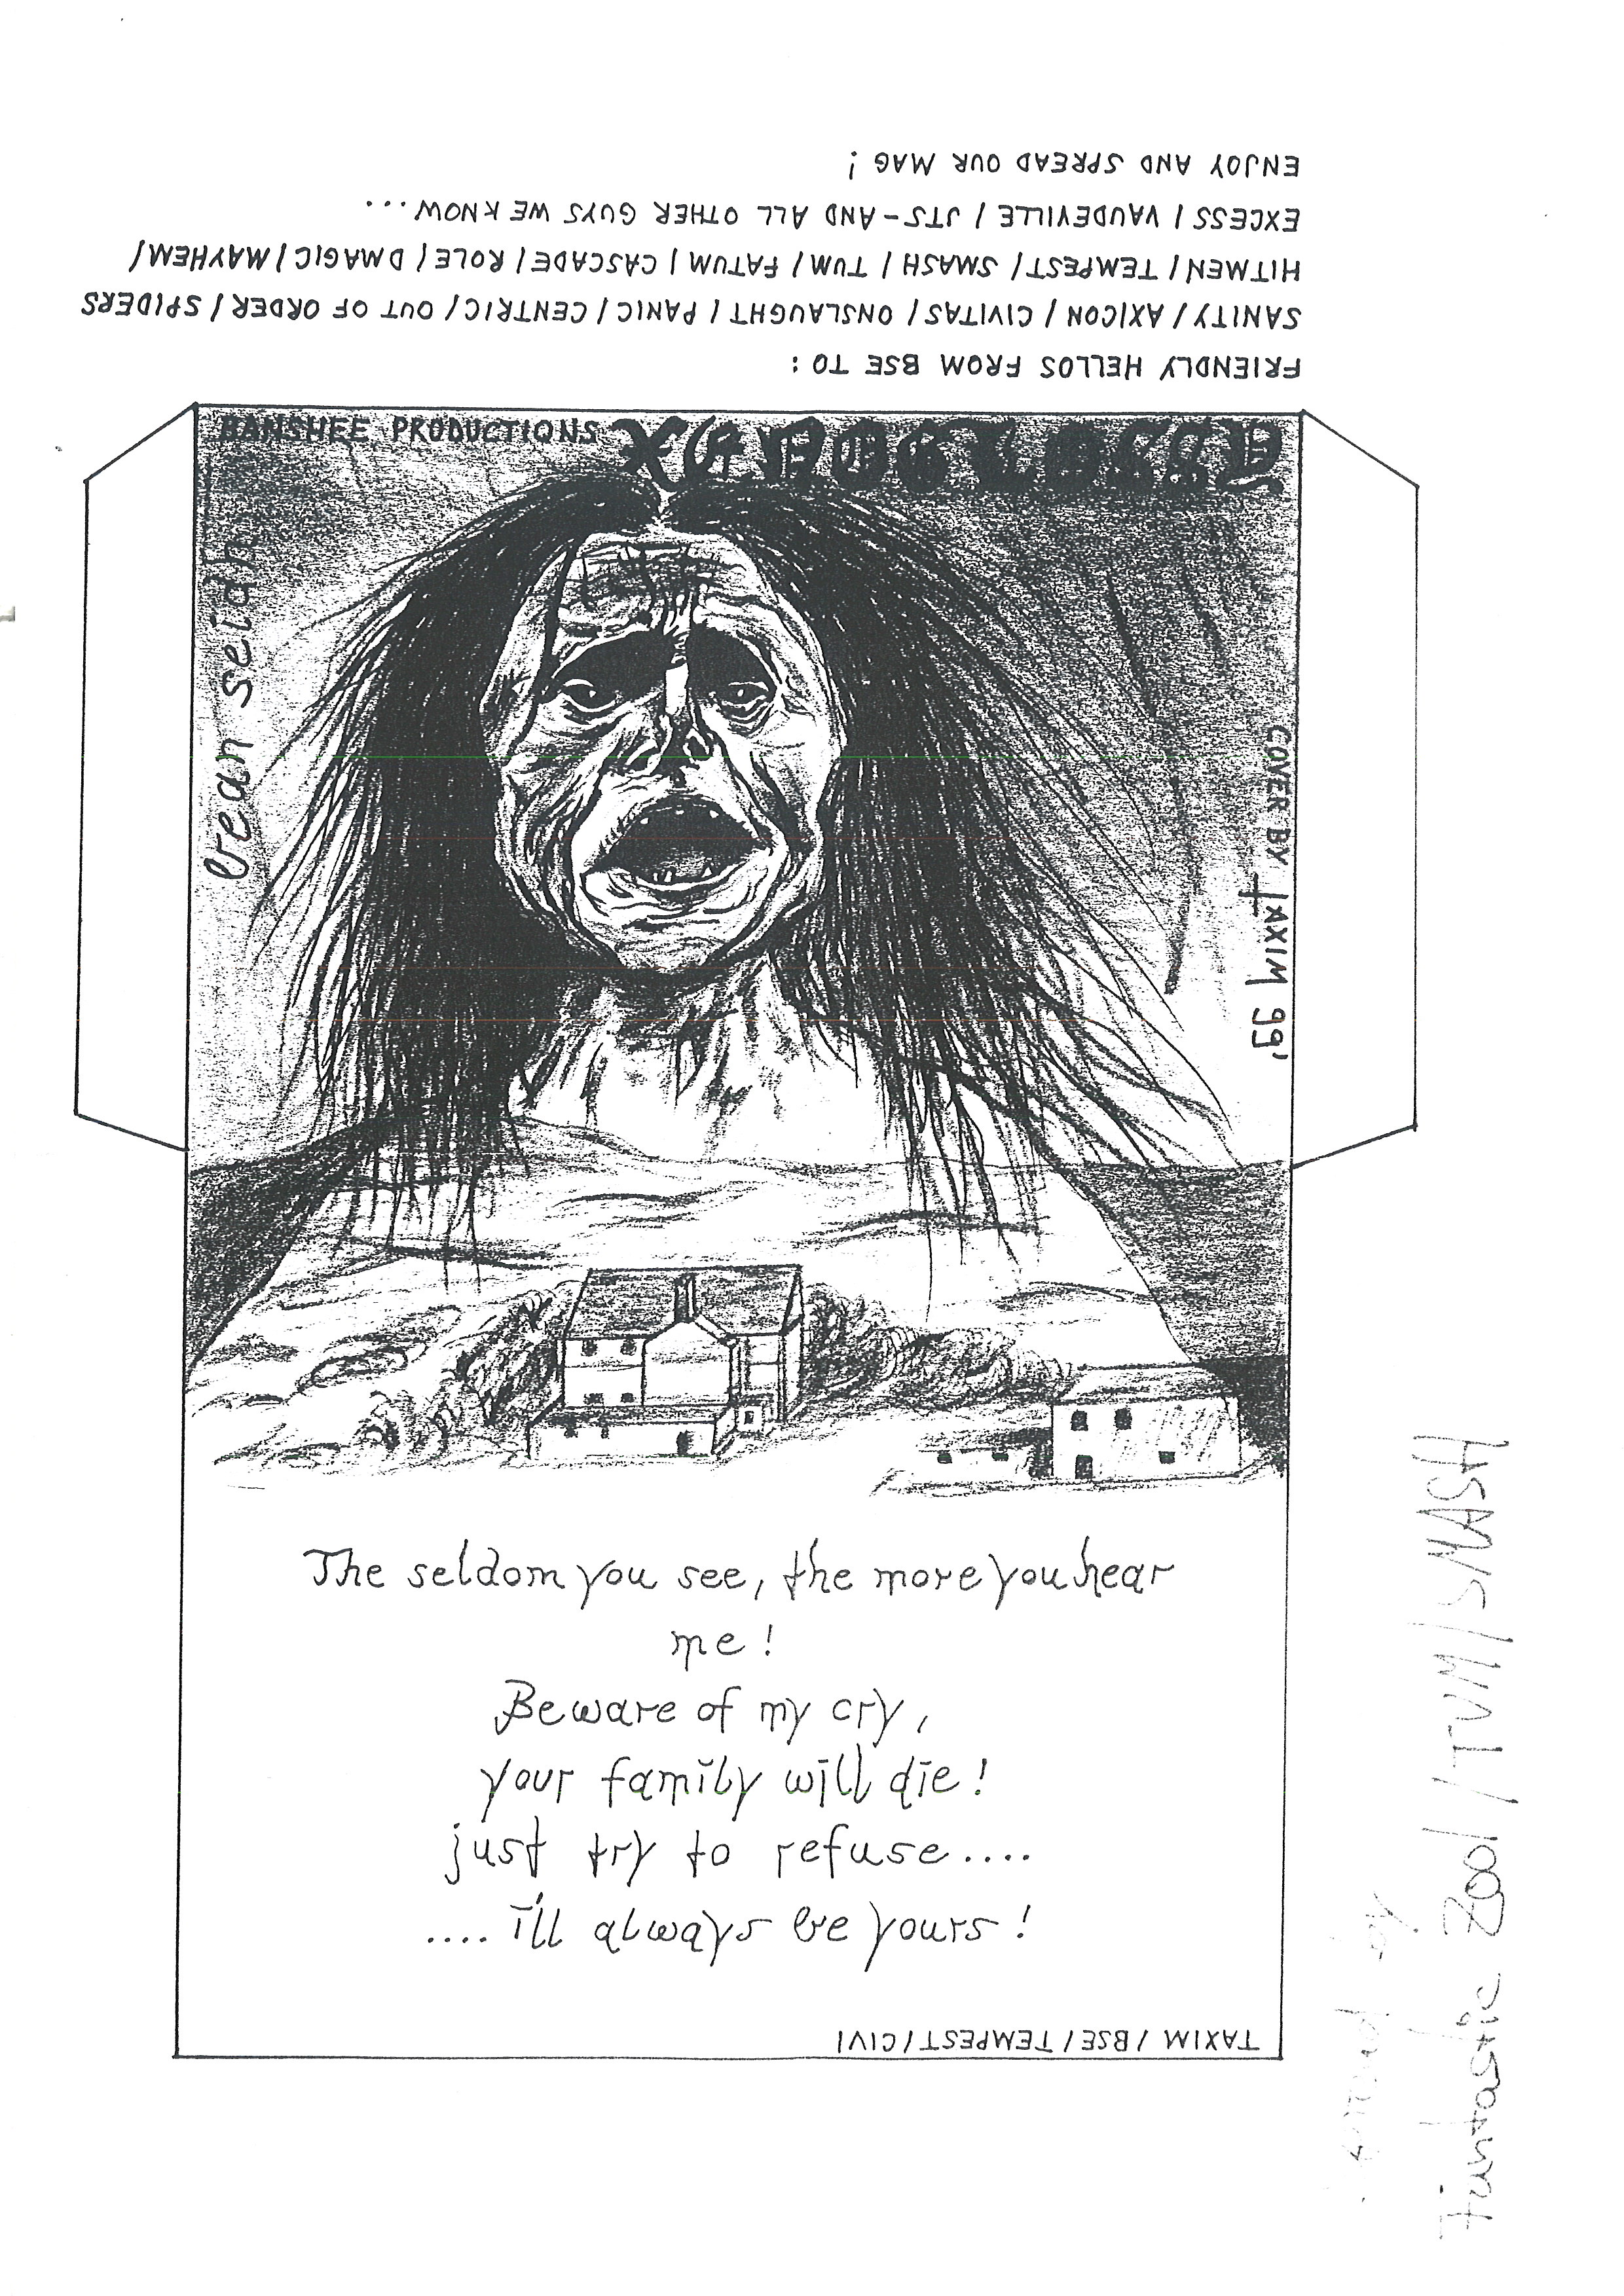 FRIENDLY HELLOS FROM BSE TO:
SANITY/ AXICON / CIVITAS/ ONSLAUGHT / PANIC/ CENTRIC/ OUT OF ORDER / SPIDERS
HITMEN/ TEMPEST/ SMASH / TUM/ FATUM / CASCADE/ ROLE/ DMAGIC/ MAYHEM/
EXCESS/ VAUDEVILLE/ JTS-AND ALL OTHER GUYS WE KNOW...
ENJOY AND SPREAD OUR MAG!
BANSHEE PRODUCTIONS XENOGLOSSY
bean seidh
COVER BY TAXIM 99'
The seldom you see, the more you hear
me!
Beware of my cry,
your family will die!
just try to refuse....
....i'll always be yours!
TAXIM / BSE / TEMPEST / CIVI
by
Zool / TUM / SMASH